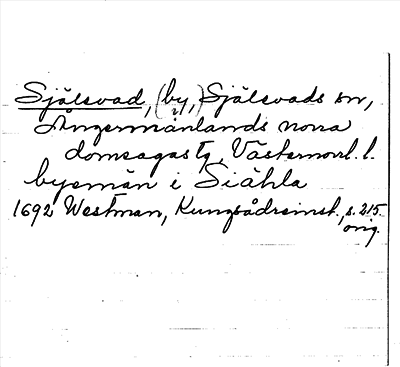 Själevad, (by,) Själevads sn,
Ångermanlands norra
domsagas tg, Västernorrl. l.
byemän i Siähla
1692 Westman, Kungsådreinst., s. 215.
orig.